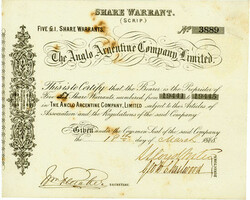 SHARE WARRANT.
(SCRIP.)
Five £1. SHARE WARRANTS. No 3889
The Anglo Argentine Company, Limited.
This is to Certify that the Bearer is the Proprietor of
Five £1 Share Warrants numbered from 19441 to 19445
in THE ANGLO ARGENTINE COMPANY, LIMITED subject to the Articles of
Association and the Regulations of the said Company.
Given under the Common Seal of the said Company
the day of March
SECRETARY.